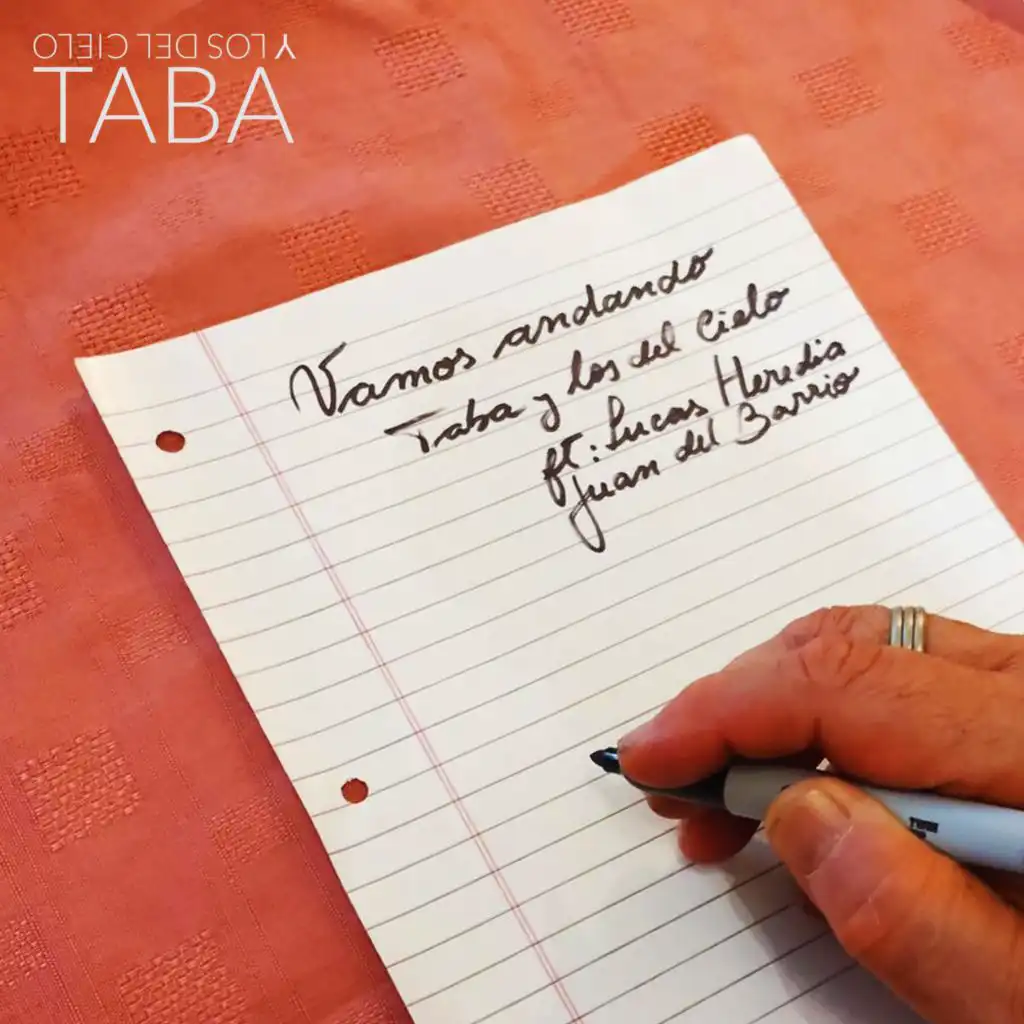 Y LOS DEL CIELO
TABA
Vamos andando
Taba y los del Cielo
ft: Lucas Heredia
Juan del Barrio